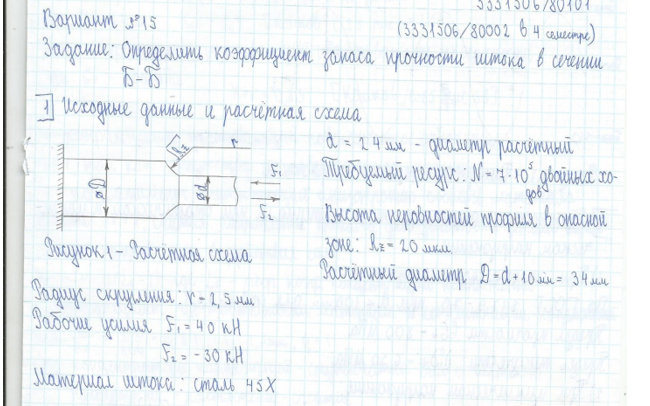 3331506/80101
Вариант №15
(3331506/80002 в 4 семестре)
Задание: Определить коэффициент запаса прочности штока в сечении
Б-Б
1 Исходные данные и расчётная схема
Rz
r
⌀D
⌀d
F₁
F₂
Рисунок 1 – Расчётная схема
d = 24 мм - диаметр расчётный
Требуемый ресурс: N = 7·10⁵ двойных хо-
дов
Высота неровностей профиля в опасной
зоне: Rz = 20 мкм
Расчётный диаметр D = d + 10 мм = 34 мм
Радиус скругления: r = 2,5 мм
Рабочие усилия F₁ = 40 кН
F₂ = -30 кН
Материал штока: сталь 45Х